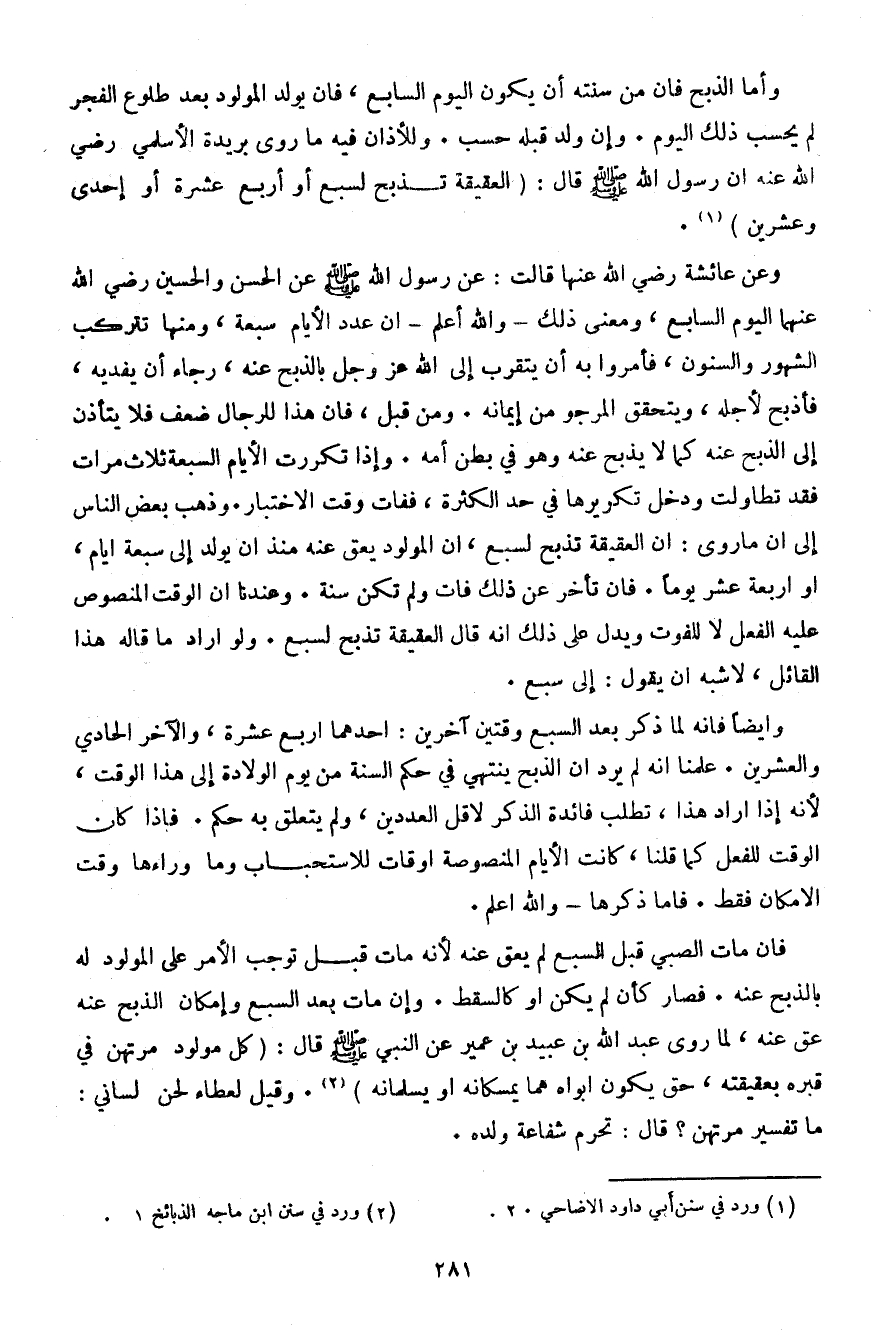 وأما الذبح فان من سنته أن يكون اليوم السابع ، فان يولد المولود بعد طلوع الفجر
لم يحسب ذلك اليوم . وإن ولد قبله حسب . وللأذان فيه ما روى بريدة الأسلمي رضي
الله عنه ان رسول الله ﷺ قال : ( العقيقة تذبح لسبع أو أربع عشرة أو إحدى
وعشرين ) (١) .
وعن عائشة رضي الله عنها قالت : عن رسول الله ﷺ عن الحسن والحسين رضي الله
عنهما اليوم السابع ، ومعنى ذلك – والله أعلم – ان عدد الأيام سبعة ، ومنها تتركب
الشهور والسنون ، فأمروا به أن يتقرب إلى الله عز وجل بالذبح عنه ، رجاء أن يفديه ،
فأذبح لأجله ، ويتحقق المرجو من إيمانه . ومن قبل ، فان هذا للرجال ضعف فلا يتأذن
إلى الذبح عنه كما لا يذبح عنه وهو في بطن أمه . وإذا تكررت الأيام السبعة ثلاث مرات
فقد تطاولت ودخل تكريرها في حد الكثرة ، ففات وقت الاختبار . وذهب بعض الناس
إلى ان ماروى : ان العقيقة تذبح لسبع ، ان المولود يعق عنه منذ ان يولد إلى سبعة ايام ،
او اربعة عشر يوماً . فان تأخر عن ذلك فات ولم تكن سنة . وعندنا ان الوقت المنصوص
عليه الفعل لا للفوت ويدل على ذلك انه قال العقيقة تذبح لسبع . ولو اراد ما قاله هذا
القائل ، لاشبه ان يقول : إلى سبع .
وايضاً فانه لما ذكر بعد السبع وقتين آخرين : احدهما اربع عشرة ، والآخر الحادي
والعشرين . علمنا انه لم يرد ان الذبح ينتهي في حكم السنة من يوم الولادة إلى هذا الوقت ،
لأنه إذا اراد هذا ، تطلب فائدة الذكر لاقل العددين ، ولم يتعلق به حكم . فاذا كان
الوقت للفعل كما قلنا ، كانت الأيام المنصوصة اوقات للاستحباب وما وراءها وقت
الامكان فقط . فاما ذكرها – والله اعلم .
فان مات الصبي قبل السبع لم يعق عنه لأنه مات قبل توجب الأمر على المولود له
بالذبح عنه . فصار كأن لم يكن او كالسقط . وإن مات بعد السبع وإمكان الذبح عنه
عق عنه ، لما روى عبد الله بن عبيد بن عمير عن النبي ﷺ قال : ( كل مولود مرتهن في
قبره بعقيقته ، حق يكون ابواه هما يمسكانه او يسلمانه ) (٢) . وقيل لعطاء لحن لساني :
ما تفسير مرتهن ؟ قال : تحرم شفاعة ولده .
(١) ورد في سنن أبي داود الاضاحي ٢٠ .
(٢) ورد في سنن ابن ماجه الذبائح ١ .
٢٨١